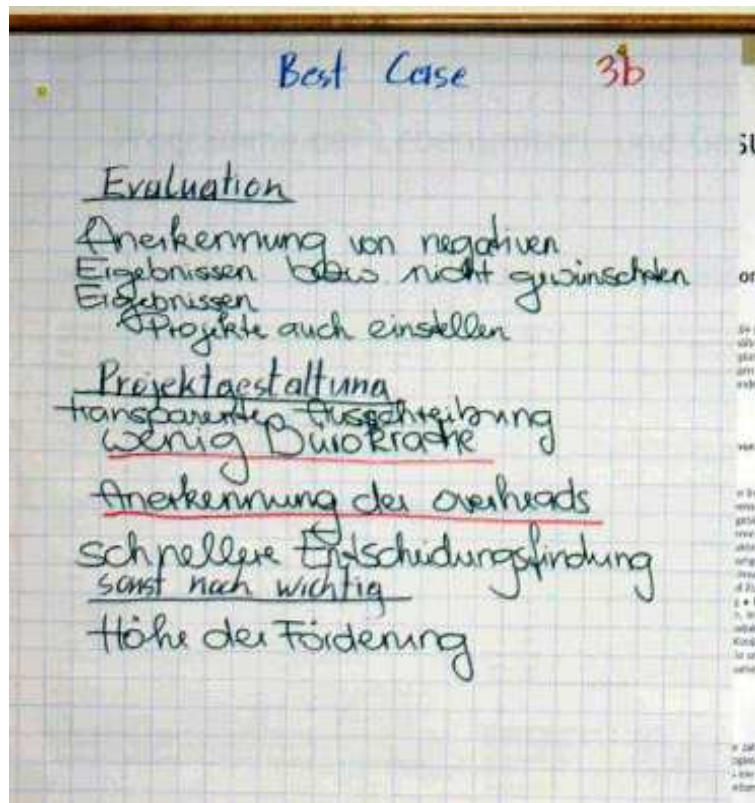 Best Case 3b
Evaluation
Anerkennung von negativen
Ergebnissen bzw nicht gewünschten
Ergebnissen
Projekte auch einstellen
Projektgestaltung
transparente Ausschreibung
wenig Bürokratie
Anerkennung der overheads
schnellere Entscheidungsfindung
sonst noch wichtig
Höhe der Förderung